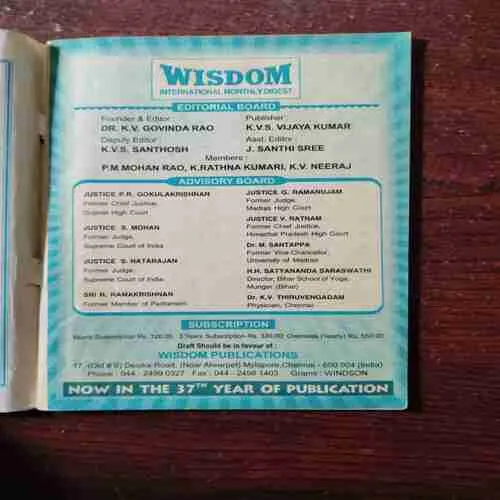 WISDOM
INTERNATIONAL MONTHLY DIGEST
EDITORIAL BOARD
Founder & Editor :
DR. K.V. GOVINDA RAO
Publisher :
K.V.S. VIJAYA KUMAR
Deputy Editor :
K.V.S. SANTHOSH
Asst. Editor :
J. SANTHI SREE
Members :
P.M.MOHAN RAO, K.RATHNA KUMARI, K.V. NEERAJ
ADVISORY BOARD
JUSTICE P.R. GOKULAKRISHNAN
Former Chief Justice,
Gujarat High Court
JUSTICE S. MOHAN
Former Judge,
Supreme Court of India
JUSTICE S. NATARAJAN
Former Judge,
Supreme Court of India
SRI R. RAMAKRISHNAN
Former Member of Parliament
JUSTICE G. RAMANUJAM
Former Judge,
Madras High Court
JUSTICE V. RATNAM
Former Chief Justice,
Himachal Pradesh High Court
Dr. M. SANTAPPA
Former Vice-Chancellor,
University of Madras
H.H. SATYANANDA SARASWATHI
Director, Bihar School of Yoga,
Munger (Bihar)
Dr. K.V. THIRUVENGADAM
Physician, Chennai
SUBSCRIPTION
Subscription Rs. 120.00 3 Years Subscription Rs. Overseas (Yearly) Rs. 550.00
Draft Should be in favour of :
WISDOM PUBLICATIONS
(Old # 9) Road, (Now Alwarpet) Mylapore,Chennai - 600 004 (India)
Phone : 044 - 2499 0327 Fax : 044 - 2498 1403 Grams : WINDSON
NOW IN THE 37TH YEAR OF PUBLICATION